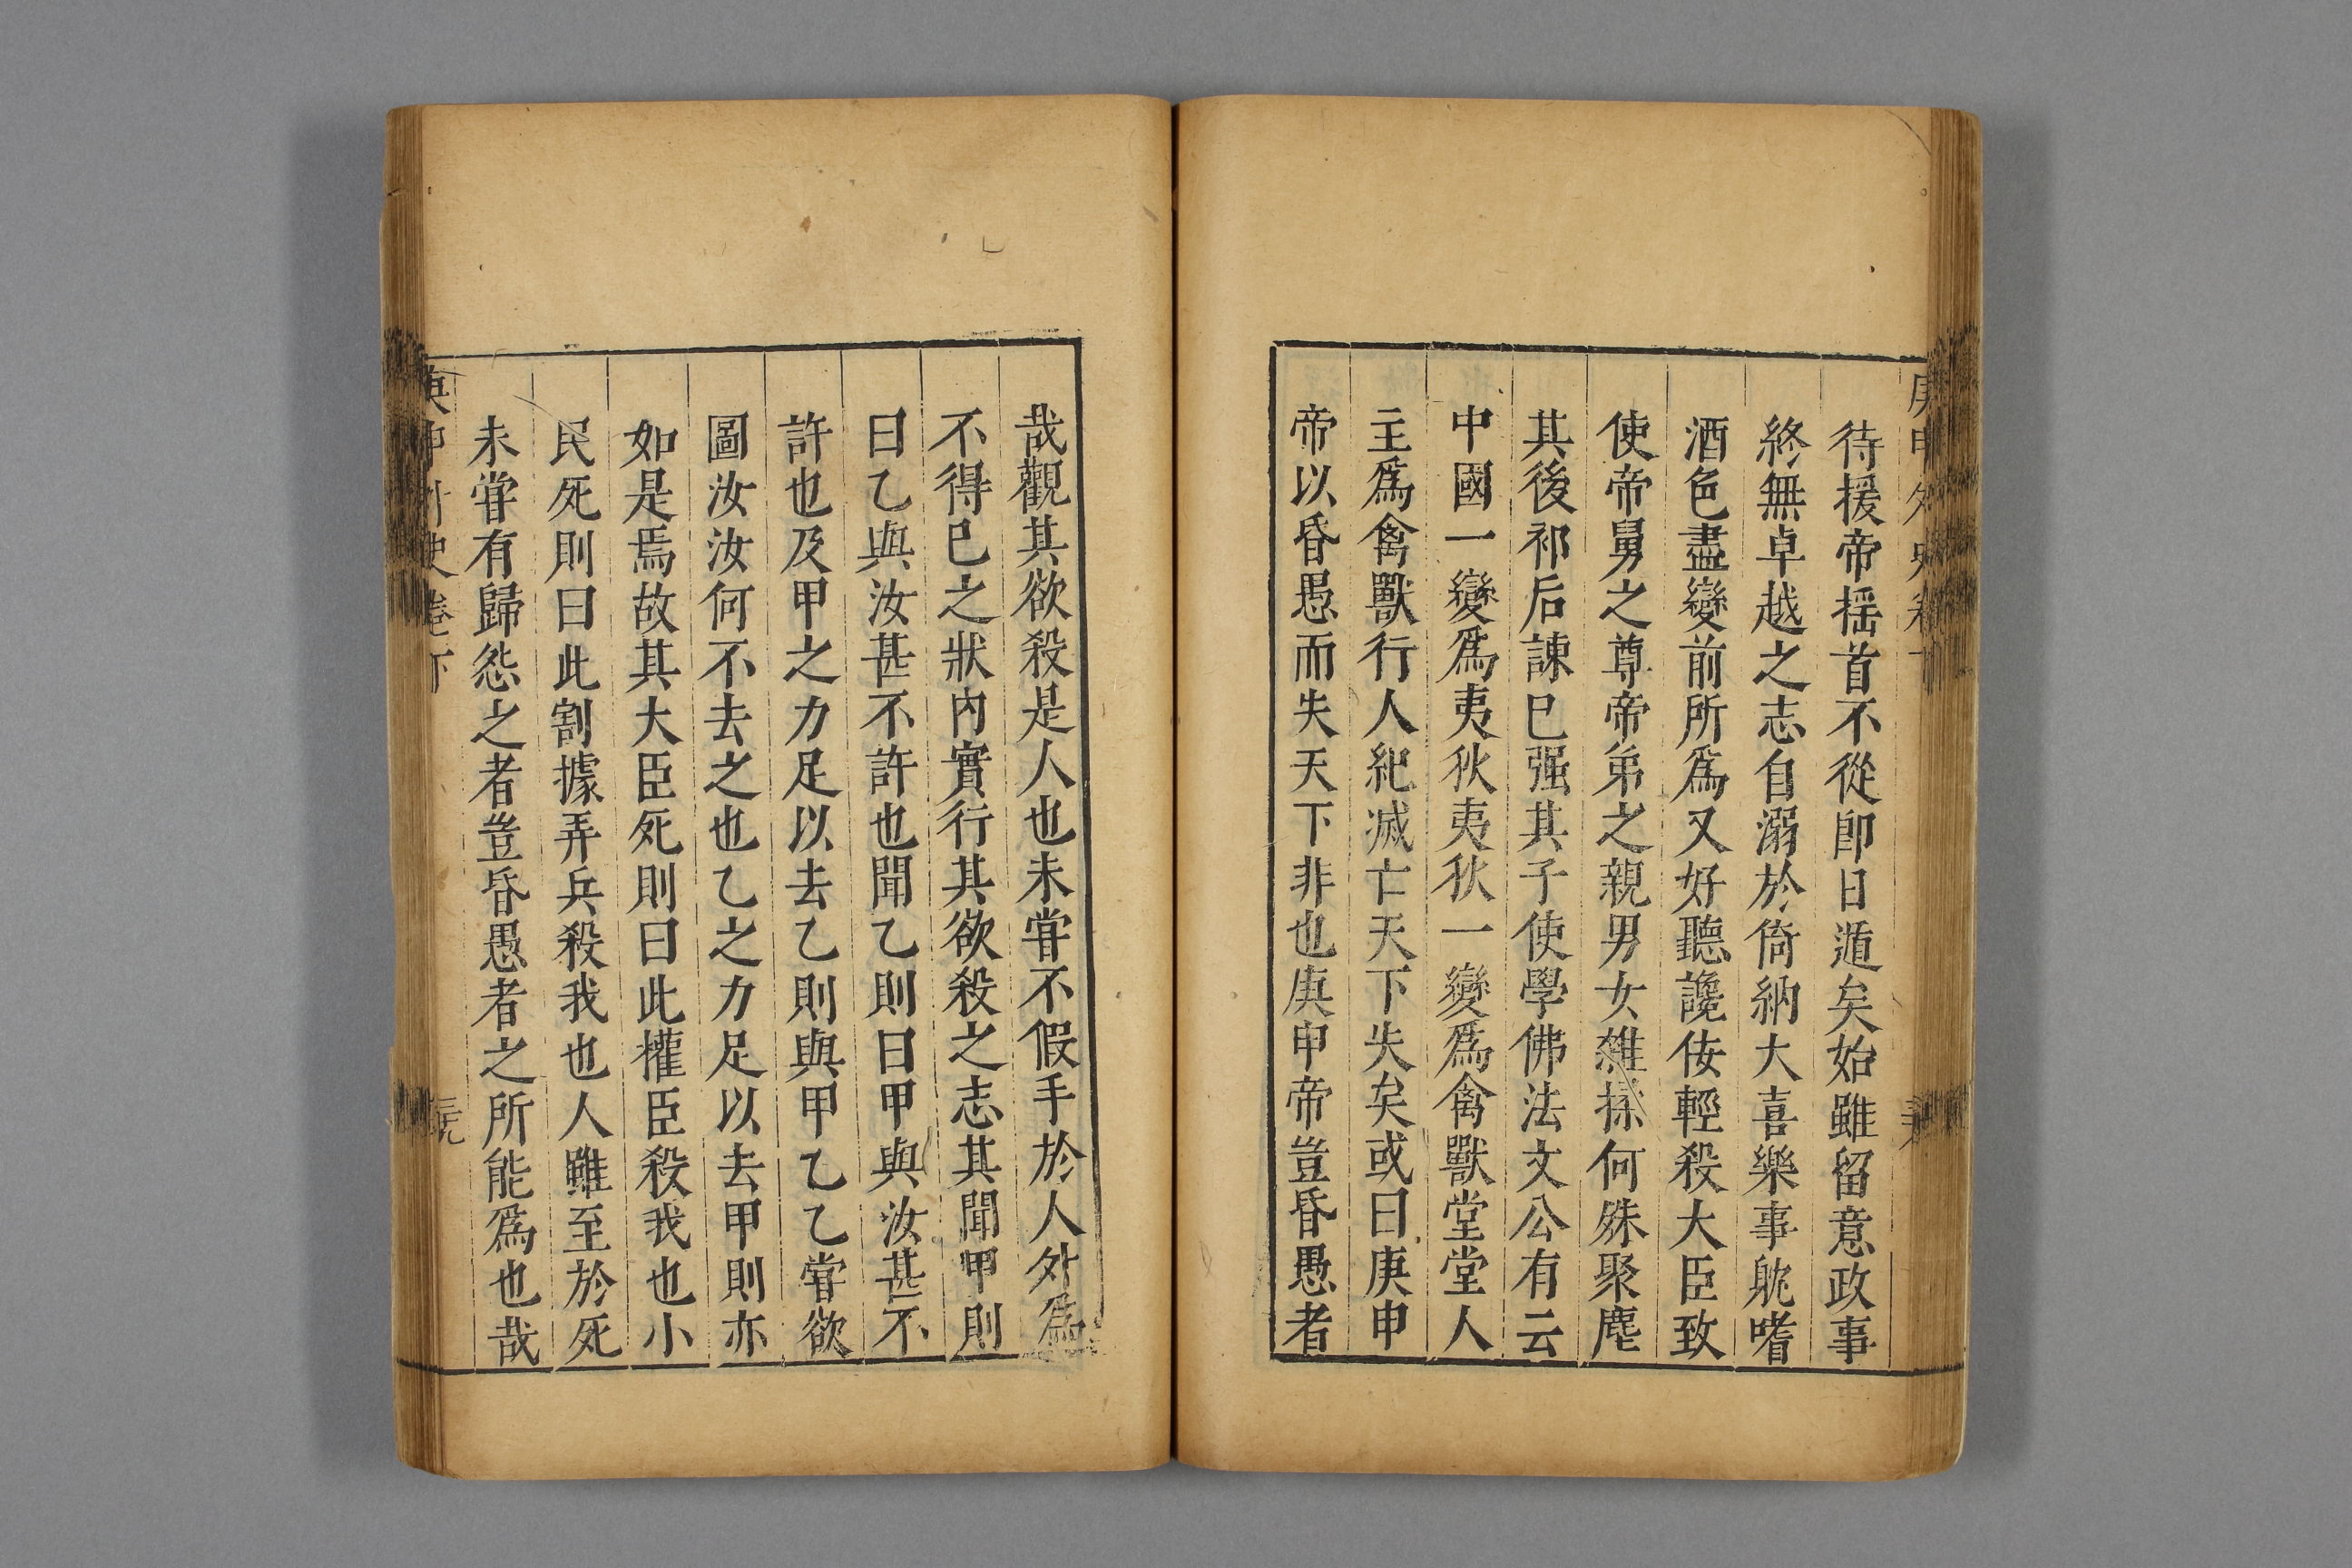 待援帝揺首不從即日遁矣始雖留意政事
終無卓越之志自溺於倚納大喜樂事躭嗜
酒色盡變前所爲又好聽讒佞輕殺大臣致
使帝舅之尊帝弟之親男女雜揉何殊聚麀
其後祁后諫已强其子使學佛法文公有云
中國一變爲夷狄夷狄一變爲禽獸堂堂人
主爲禽獸行人紀滅亡天下失矣或曰庚申
帝以昏愚而失天下非也庚申帝豈昏愚者
哉觀其欲殺是人也未甞不假手於人外爲
不得已之狀内實行其欲殺之志其聞甲則
曰乙與汝甚不許也聞乙則曰甲與汝甚不
許也及甲之力足以去乙則與甲乙乙甞欲
圖汝汝何不去之也乙之力足以去甲則亦
如是焉故其大臣死則曰此權臣殺我也小
民死則曰此割據弄兵殺我也人雖至於死
未甞有歸怨之者豈昏愚者之所能爲也哉
庚申外史卷下